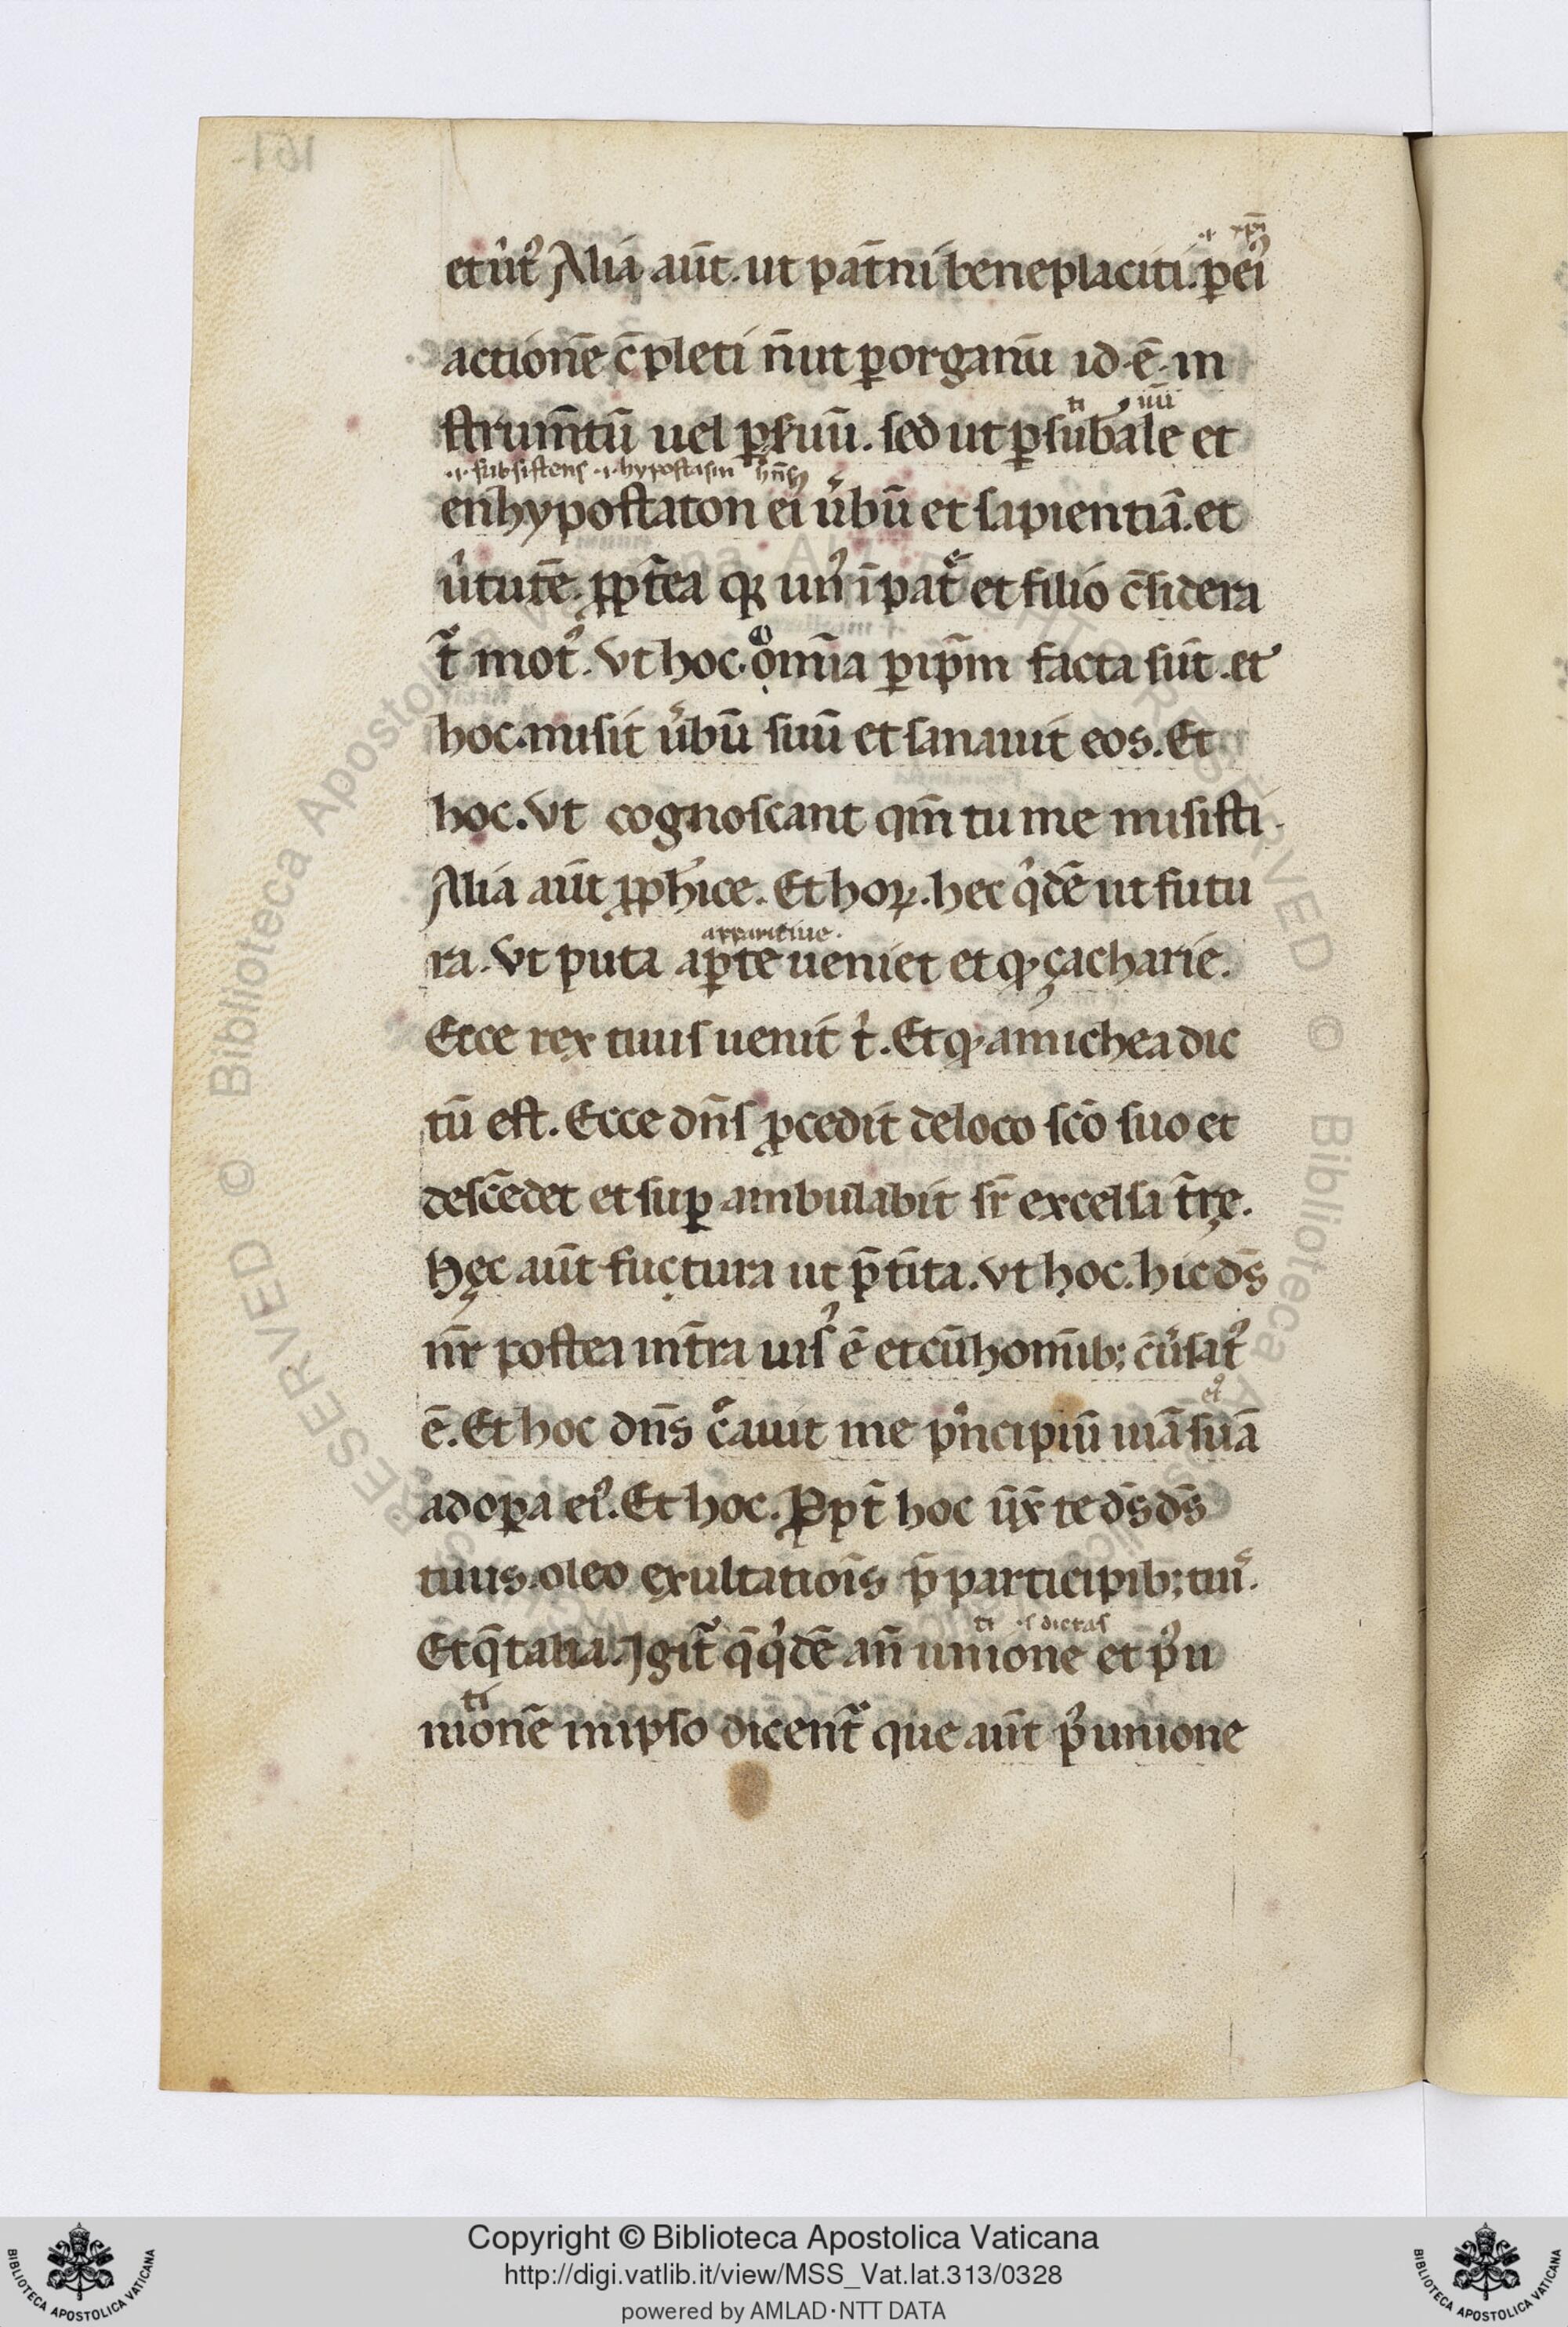 ·i· xp̄i
et ūt᷒ Alia aūt. ut pat̄ni beneplaciti. ꝑ ei᷒
actionē c̄pleti n̄ ut ꝑ organū id·ē· in
ti uū
strum̄tū uel ꝑ suū. sed ut ꝑ sub̄ale et
·i· subsistens ·i· hypostasin
enhypostaton ei u̓bū et sapientiā. et
u̓tutē. ꝓpt̄ea qꝫ un᷒ ī pat̄ et filio c̄sidera
t̄ mot᷒. Vt hoc. om̄ia ꝑ ip̄m facta sūt. et
hoc. misit u̓bū suū et sanauit eos. Et
hoc. Vt cognoscant qm̄ tu me misisti.
Alia aūt ꝓph̓ice. Et hoꝝ. hec qͥdē ut futu
apparitiue.
ra. Vt puta aꝑte ueniet et qͩ çacharie.
Ecce rex tuus uenit tͥ. Et qͩ a michea dic
tū est. Ecce dn̄s ꝓcedit de loco sc̄o suo et
desc̄edet et suꝑ ambulabit sr̄ excelsa t̄rę.
Hęc aūt fuctura ut p̄t̄ita. Vt hoc. hic ds̄
nr̄ postea in t̄ra uis᷒ ē et cū homībꝫ c̄u̓sat᷒
ē. Et hoc dn̄s c̓auit me pͥncipiū uiā suā
ad oꝑa ei᷒. Et hoc. Ꝓpt̄ hoc ūx̄ te ds̄ ds̄
tuus. oleo exultatiois̄ p̄ participibꝫ tui᷒.
ti ·s· dictas
Et q̄ talia. Igit̄ q̄ qͥdē an̄ unione et p᷒ u
ti
nionē in ipso dicent̄ que aūt p᷒ unione
Copyright © Biblioteca Apostolica Vaticana
http://digi.vatlib.it/view/MSS_Vat.lat.313/0328
powered by AMLAD·NTT DATA
BIBLIOTECA APOSTOLICA VATICANA
BIBLIOTECA APOSTOLICA VATICANA